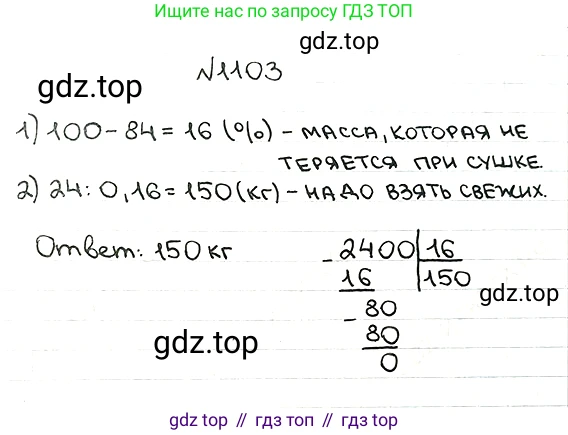 Ищите нас по запросу ГДЗ ТОП
gdz.top
№1103
gdz.top
1) 100 - 84 = 16 (%) - масса, которая не
теряется при сушке.
2) 24 : 0,16 = 150 (кг) - надо взять свежих.
Ответ: 150 кг
- 2400 | 16
16 | 150
- 80
80
0
gdz.top
gdz.top
gdz.top // гдз топ // gdz.top // гдз топ